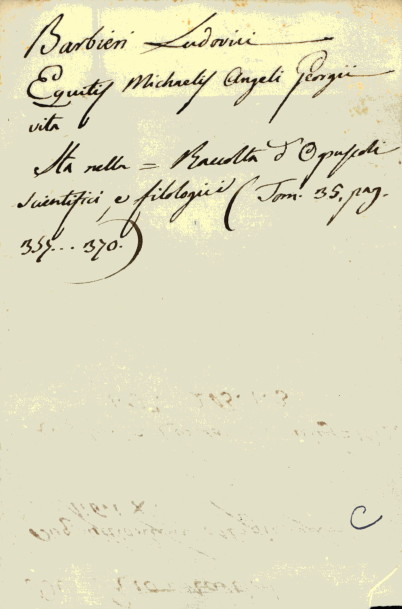 Barbieri Ludovici
Equitis Michaelis Angeli Georgii
vita
Sta nella = Raccolta d'Opuscoli
scientifici, e filologici ( Tom. 35. pag.
355... 370. )
C